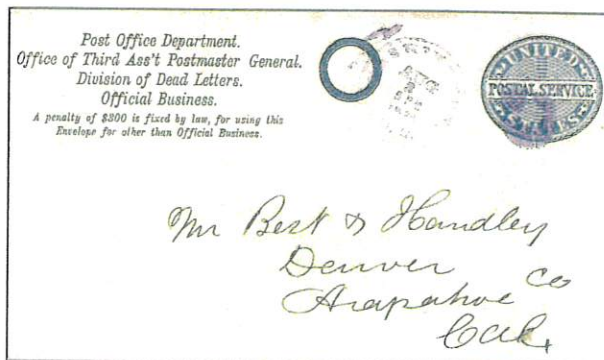 Post Office Department.
Office of Third Ass't Postmaster General.
Division of Dead Letters.
Official Business.
A penalty of $300 is fixed by law, for using this
Envelope for other than Official Business.
UNITED
POSTAL SERVICE
STATES
Mr Best & Handley
Denver
Arapahoe Co
Col,